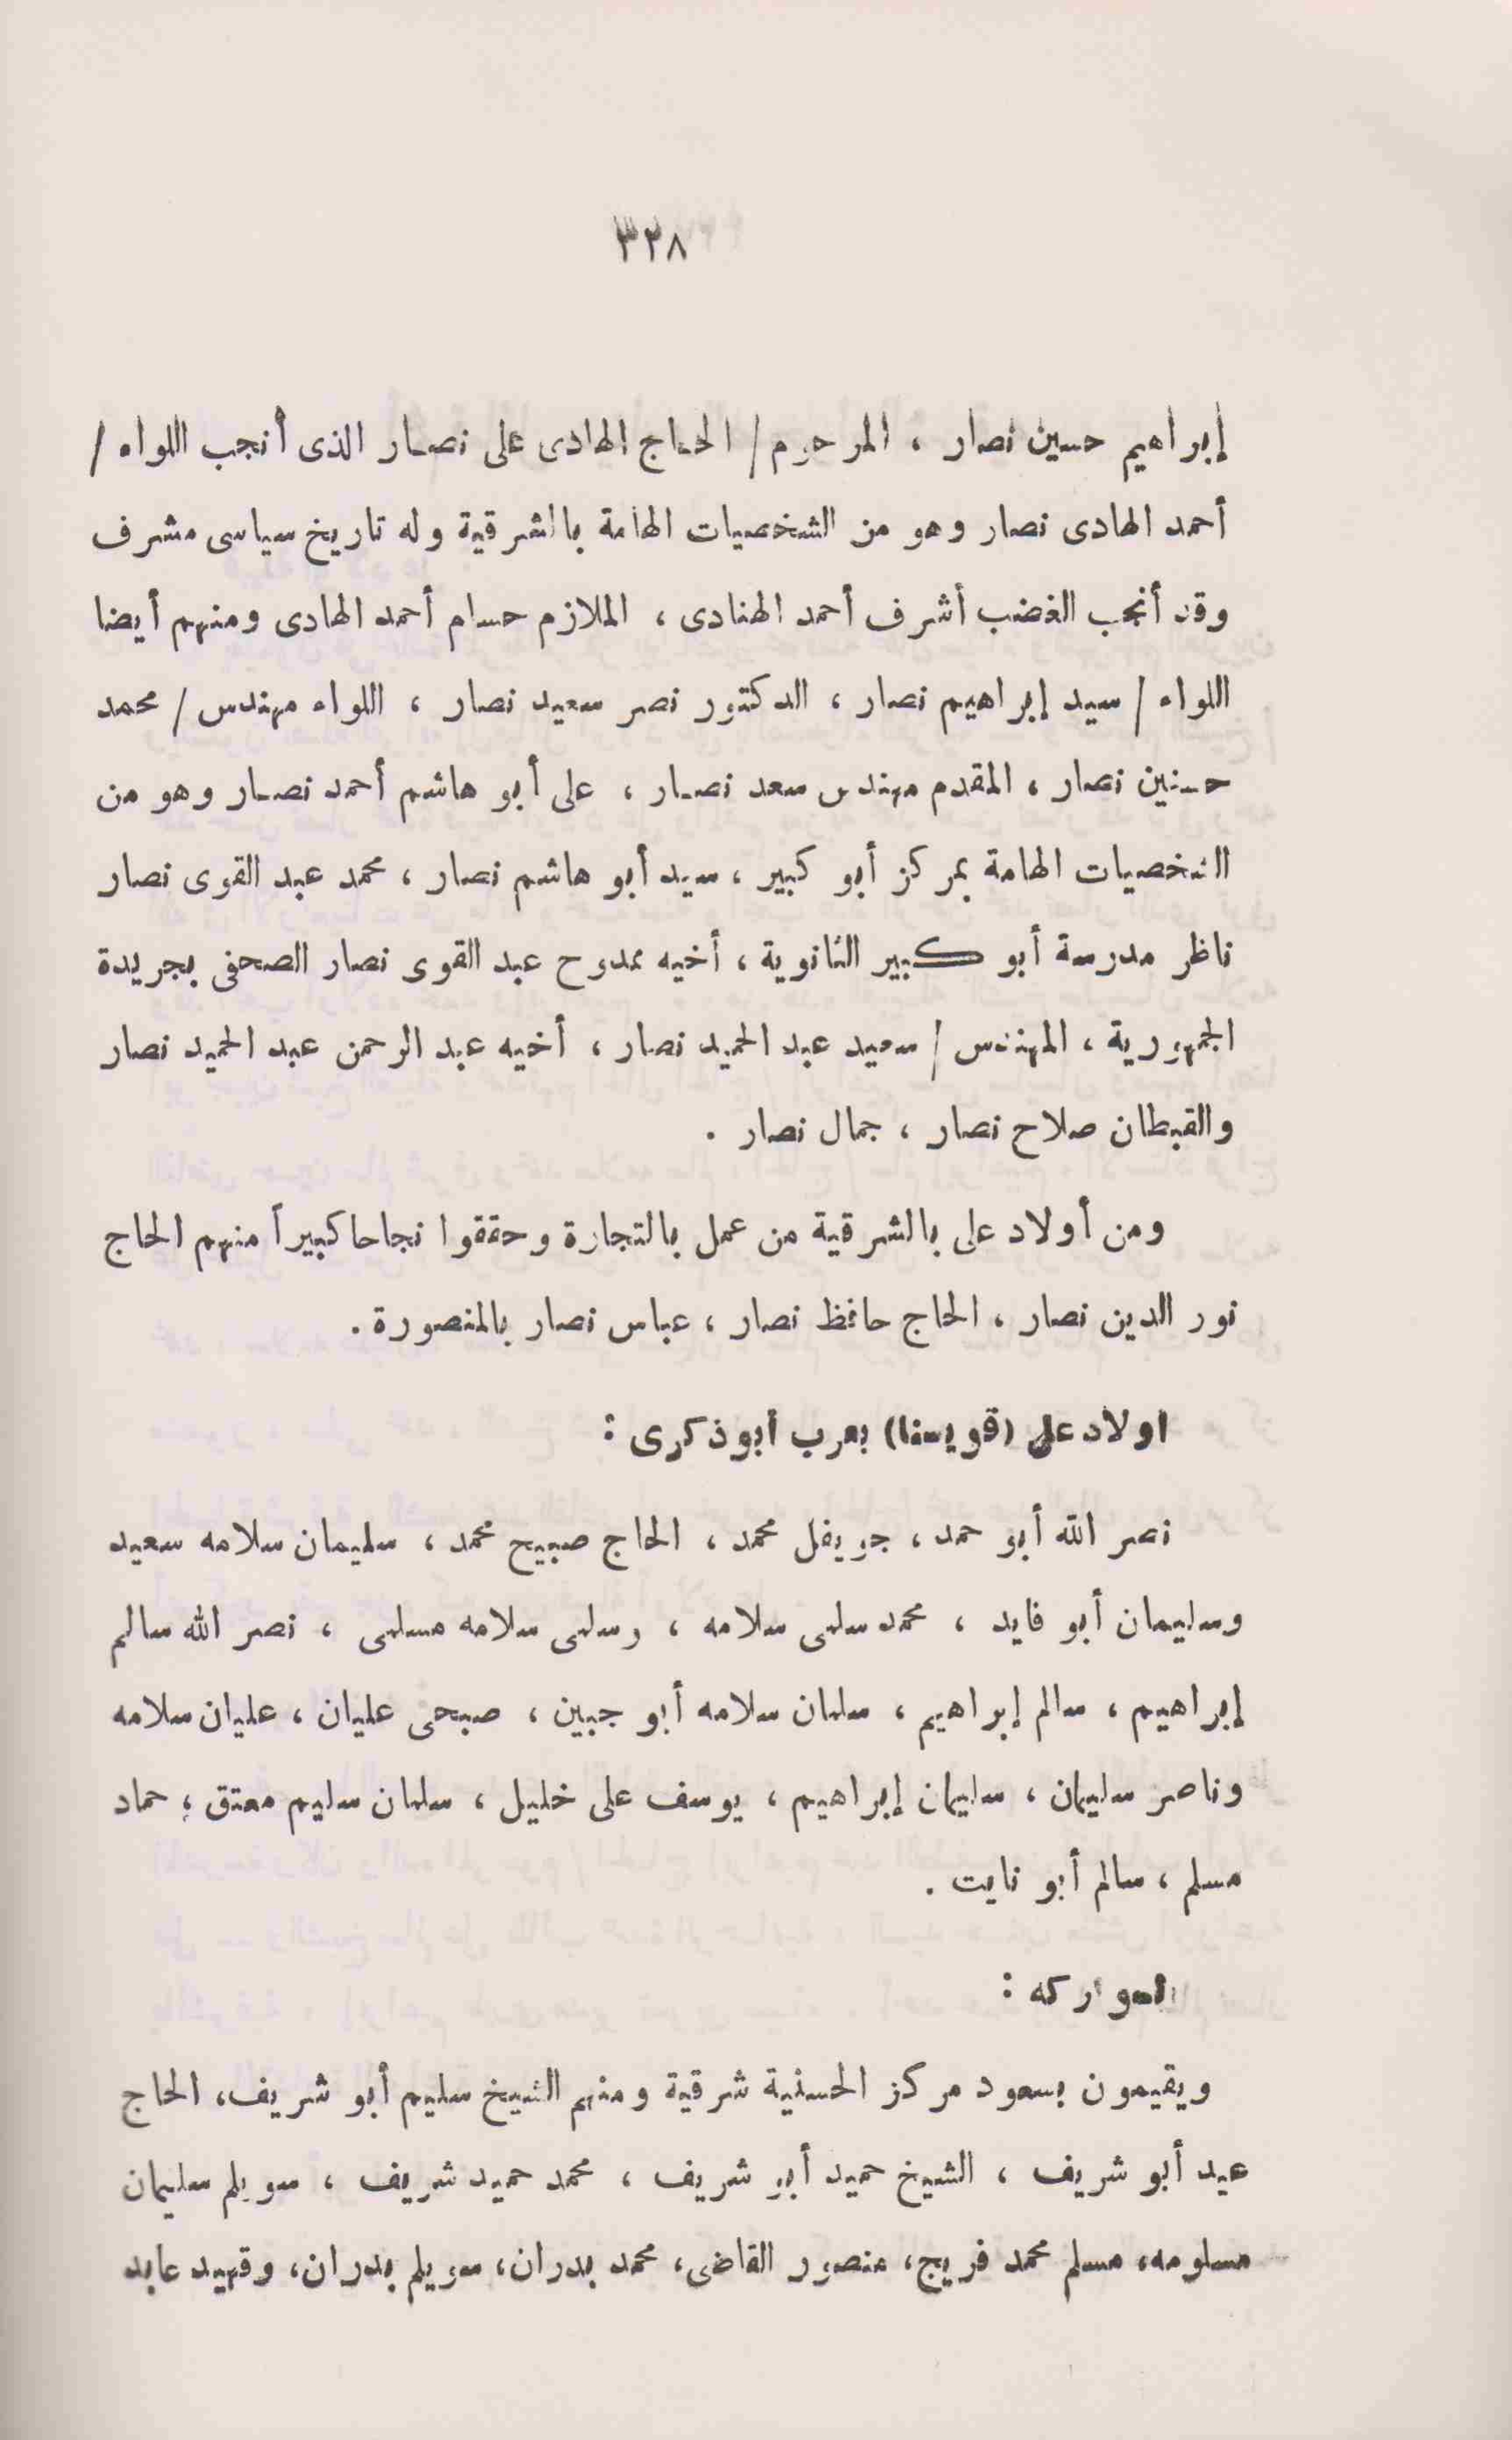 ٣٢٨
إبراهيم حسين نصار ، المرحوم / الحاج الهادى على نصار الذى أنجب اللواء /
أحمد الهادى نصار وهو من الشخصيات الهامة بالشرقية وله تاريخ سياسى مشرف
وقد أنجب الغضب أشرف أحمد الهنادى ، الملازم حسام أحمد الهادى ومنهم أيضا
اللواء / سيد إبراهيم نصار ، الدكتور نصر سعيد نصار ، اللواء مهندس / محمد
حسنين نصار ، المقدم مهندس سعد نصار ، على أبو هاشم أحمد نصار وهو من
الشخصيات الهامة بمركز أبو كبير ، سيد أبو هاشم نصار ، محمد عبد القوى نصار
ناظر مدرسة أبو كبير الثانوية ، أخيه ممدوح عبد القوى نصار الصحفى بجريدة
الجمهورية ، المهندس / سعيد عبد الحميد نصار ، أخيه عبد الرحمن عبد الحميد نصار
والقبطان صلاح نصار ، جمال نصار .
ومن أولاد على بالشرقية من عمل بالتجارة وحققوا نجاحا كبيراً منهم الحاج
نور الدين نصار ، الحاج حافظ نصار ، عباس نصار بالمنصورة .
اولاد على (قويسنا) بعرب أبو ذكرى :
نصر الله أبو حمد ، جويفل محمد ، الحاج صبيح محمد ، سليمان سلامه سعيد
وسليمان أبو فايد ، محمد سلمى سلامه ، وسلمى سلامه مسلمى ، نصر الله سالم
إبراهيم ، سالم إبراهيم ، سلمان سلامه أبو جبين ، صبحى عليان ، عليان سلامه
وناصر سليمان ، سليمان إبراهيم ، يوسف على خليل ، سلمان سليم معتق ، حماد
مسلم ، سالم أبو نايت .
السواركه :
ويقيمون بسعود مركز الحسنية شرقية ومنهم الشيخ سليم أبو شريف ، الحاج
عيد أبو شريف ، الشيخ حميد أبو شريف ، محمد حميد شريف ، سويلم سليمان
مسلومه ، مسلم محمد فريج ، منصور القاضى ، محمد بدران ، سويلم بدران ، وقهيد عابد